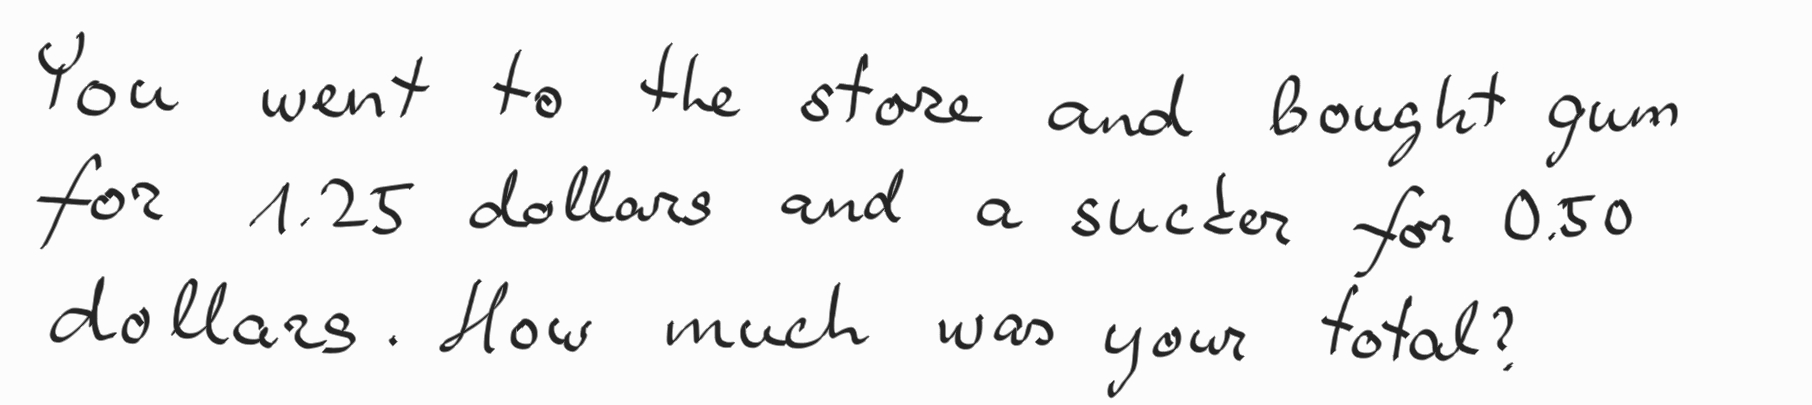 You went to the store and bought gum
for 1.25 dollars and a sucker for 0.50
dollars. How much was your total?